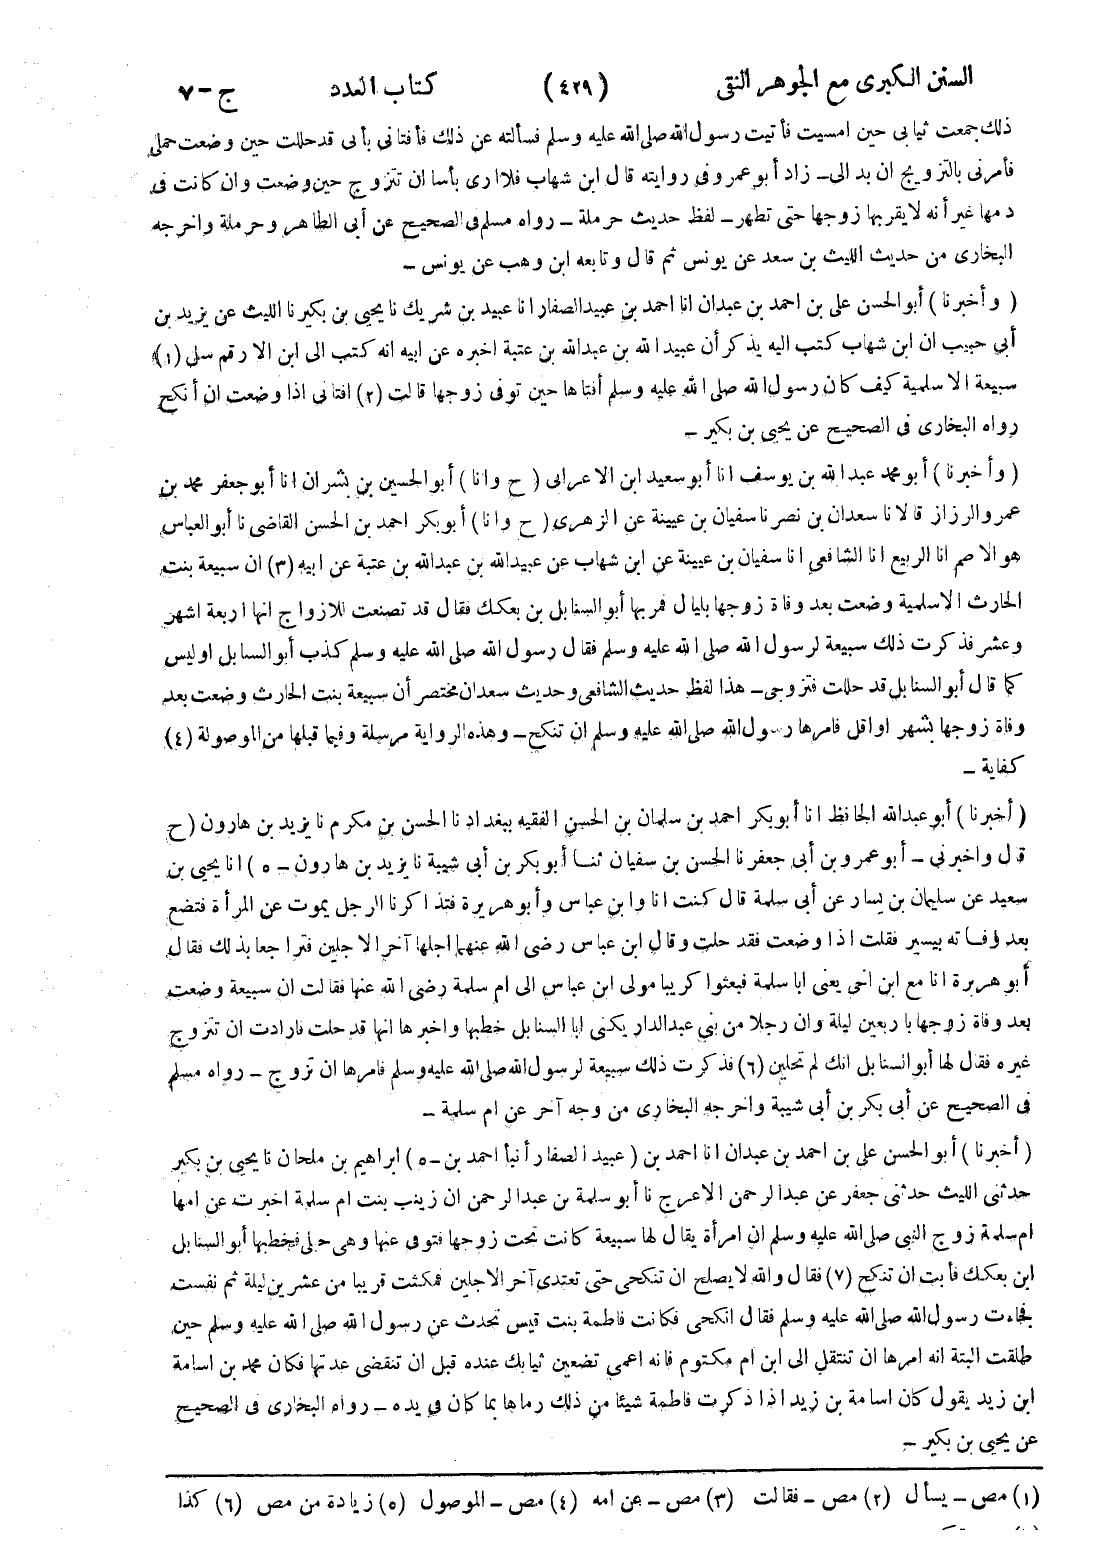 السنن الكبرى مع الجوهر النقى (٤٢٩) كتاب العدد ج-٧
ذلك جمعت ثيابى حين امسيت فأتيت رسول الله صلى الله عليه وسلم فسألته عن ذلك فأفتانى بأنى قد حللت حين وضعت حملى
فأمرنى بالتزويج ان بدالى- زاد أبو عمرو فى روايته قال ابن شهاب فلا ارى بأسا ان تتزوج حين وضعت وان كانت فى
دمها غير أنه لا يقربها زوجها حتى تطهر- لفظ حديث حرملة - رواه مسلم فى الصحيح عن أبى الطاهر وحرملة واخرجه
البخارى من حديث الليث بن سعد عن يونس ثم قال وتابعه ابن وهب عن يونس -
( وأخبرنا ) أبو الحسن على بن احمد بن عبدان انا احمد بن عبيد الصفار انا عبيد بن شريك نا يحيى بن بكير نا الليث عن يزيد بن
أبى حبيب ان ابن شهاب كتب اليه يذكر أن عبيد الله بن عبدالله بن عتبة اخبره عن ابيه انه كتب الى ابن الارقم سلى (١)
سبيعة الاسلمية كيف كان رسول الله صلى الله عليه وسلم أفتاها حين توفى زوجها قالت (٢) افتانى اذا وضعت ان أنكح
رواه البخارى فى الصحيح عن يحيى بن بكير -
( وأخبرنا ) أبو محمد عبد الله بن يوسف انا أبو سعيد ابن الاعرابى ( ح وانا ) أبو الحسين بن بشران انا أبو جعفر محمد بن
عمرو الرزاز قالا نا سعدان بن نصر نا سفيان بن عيينة عن الزهرى ( ح وانا ) أبو بكر احمد بن الحسن القاضى نا أبو العباس
هو الاصم انا الربيع انا الشافعى انا سفيان بن عيينة عن ابن شهاب عن عبيدالله بن عبدالله بن عتبة عن ابيه (٣) ان سبيعة بنت
الحارث الاسلمية وضعت بعد وفاة زوجها بليال فمر بها أبو السنابل بن بعكك فقال قد تصنعت للازواج انها اربعة اشهر
وعشر فذكرت ذلك سبيعة لرسول الله صلى الله عليه وسلم فقال رسول الله صلى الله عليه وسلم كذب أبو السنابل اوليس
كما قال أبو السنابل قد حللت فتزوجى- هذا لفظ حديث الشافعى وحديث سعدان مختصر أن سبيعة بنت الحارث وضعت بعد
وفاة زوجها بشهر او اقل فامرها رسول الله صلى الله عليه وسلم ان تنكح- وهذه الرواية مرسلة وفيما قبلها من الموصولة (٤)
كفاية -
( أخبرنا ) أبو عبدالله الحافظ انا أبو بكر احمد بن سلمان بن الحسن الفقيه ببغداد نا الحسن بن مكرم نا يزيد بن هارون ( ح
قال واخبرنى - أبو عمرو بن أبى جعفر نا الحسن بن سفيان ثنا أبو بكر بن أبى شيبة نا يزيد بن هارون - ٥ ) انا يحيى بن
سعيد عن سليمان بن يسار عن أبى سلمة قال كنت انا وابن عباس وأبو هريرة فتذاكرنا الرجل يموت عن المرأة فتضع
بعد وفاته بيسير فقلت اذا وضعت فقد حلت وقال ابن عباس رضى الله عنهما اجلها آخر الاجلين فتراجعا بذلك فقال
أبو هريرة انا مع ابن اخى يعنى ابا سلمة فبعثوا كريبا مولى ابن عباس الى ام سلمة رضى الله عنها فقالت ان سبيعة وضعت
بعد وفاة زوجها باربعين ليلة وان رجلا من بنى عبدالدار يكنى ابا السنابل خطبها واخبرها انها قد حلت فارادت ان تتزوج
غيره فقال لها أبو السنابل انك لم تحلين (٦) فذكرت ذلك سبيعة لرسول الله صلى الله عليه وسلم فامرها ان تزوج - رواه مسلم
فى الصحيح عن أبى بكر بن أبى شيبة واخرجه البخارى من وجه آخر عن ام سلمة -
( أخبرنا ) أبو الحسن على بن احمد بن عبدان انا احمد بن ( عبيد الصفار أنبأ احمد بن -٥ ) ابراهيم بن ملحان نا يحيى بن بكير
حدثنى الليث حدثنى جعفر عن عبدالرحمن الاعرج نا أبو سلمة بن عبدالرحمن ان زينب بنت ام سلمة اخبرت عن امها
ام سلمة زوج النبى صلى الله عليه وسلم ان امرأة يقال لها سبيعة كانت تحت زوجها فتوفى عنها وهى حبلى فخطبها أبو السنابل
ابن بعكك فأبت ان تنكح (٧) فقال والله لا يصلح ان تنكحى حتى تعتدى آخر الاجلين فمكثت قريبا من عشرين ليلة ثم نفست
فجاءت رسول الله صلى الله عليه وسلم فقال انكحى فكانت فاطمة بنت قيس تحدث عن رسول الله صلى الله عليه وسلم حين
طلقت البتة انه امرها ان تنتقل الى ابن ام مكتوم فانه اعمى تضعين ثيابك عنده قبل ان تنقضى عدتها فكان محمد بن اسامة
ابن زيد يقول كان اسامة بن زيد اذا ذكرت فاطمة شيئا من ذلك رماها بما كان فى يده - رواه البخارى فى الصحيح
عن يحيى بن بكير -
(١) مص - يسأل (٢) مص - فقالت (٣) مص - عن امه (٤) مص - الموصول (٥) زيادة من مص (٦) كذا